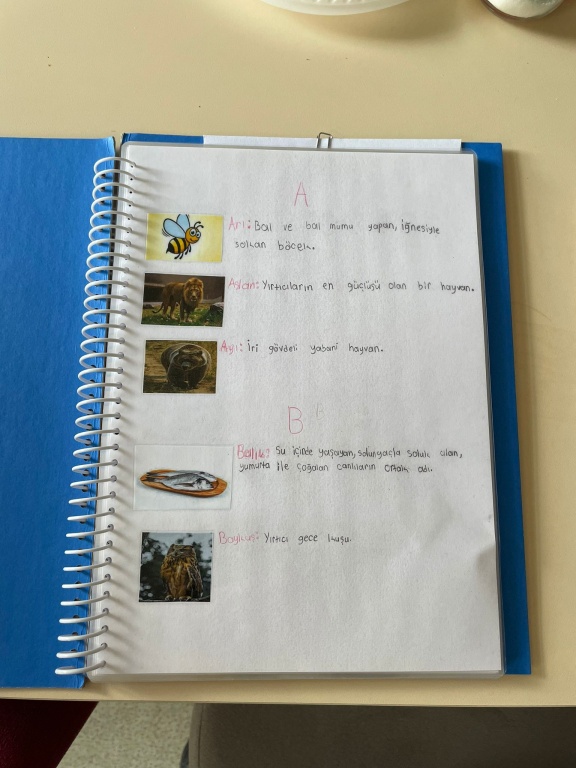 A
Arı: Bal ve bal mumu yapan, iğnesiyle
sokan böcek.
Aslan: Yırtıcıların en güçlüsü olan bir hayvan.
Ayı: İri gövdeli yabani hayvan.
B
Balık: Su içinde yaşayan, solungaçla soluk alan,
yumurta ile çoğalan canlıların ortak adı.
Baykuş: Yırtıcı gece kuşu.